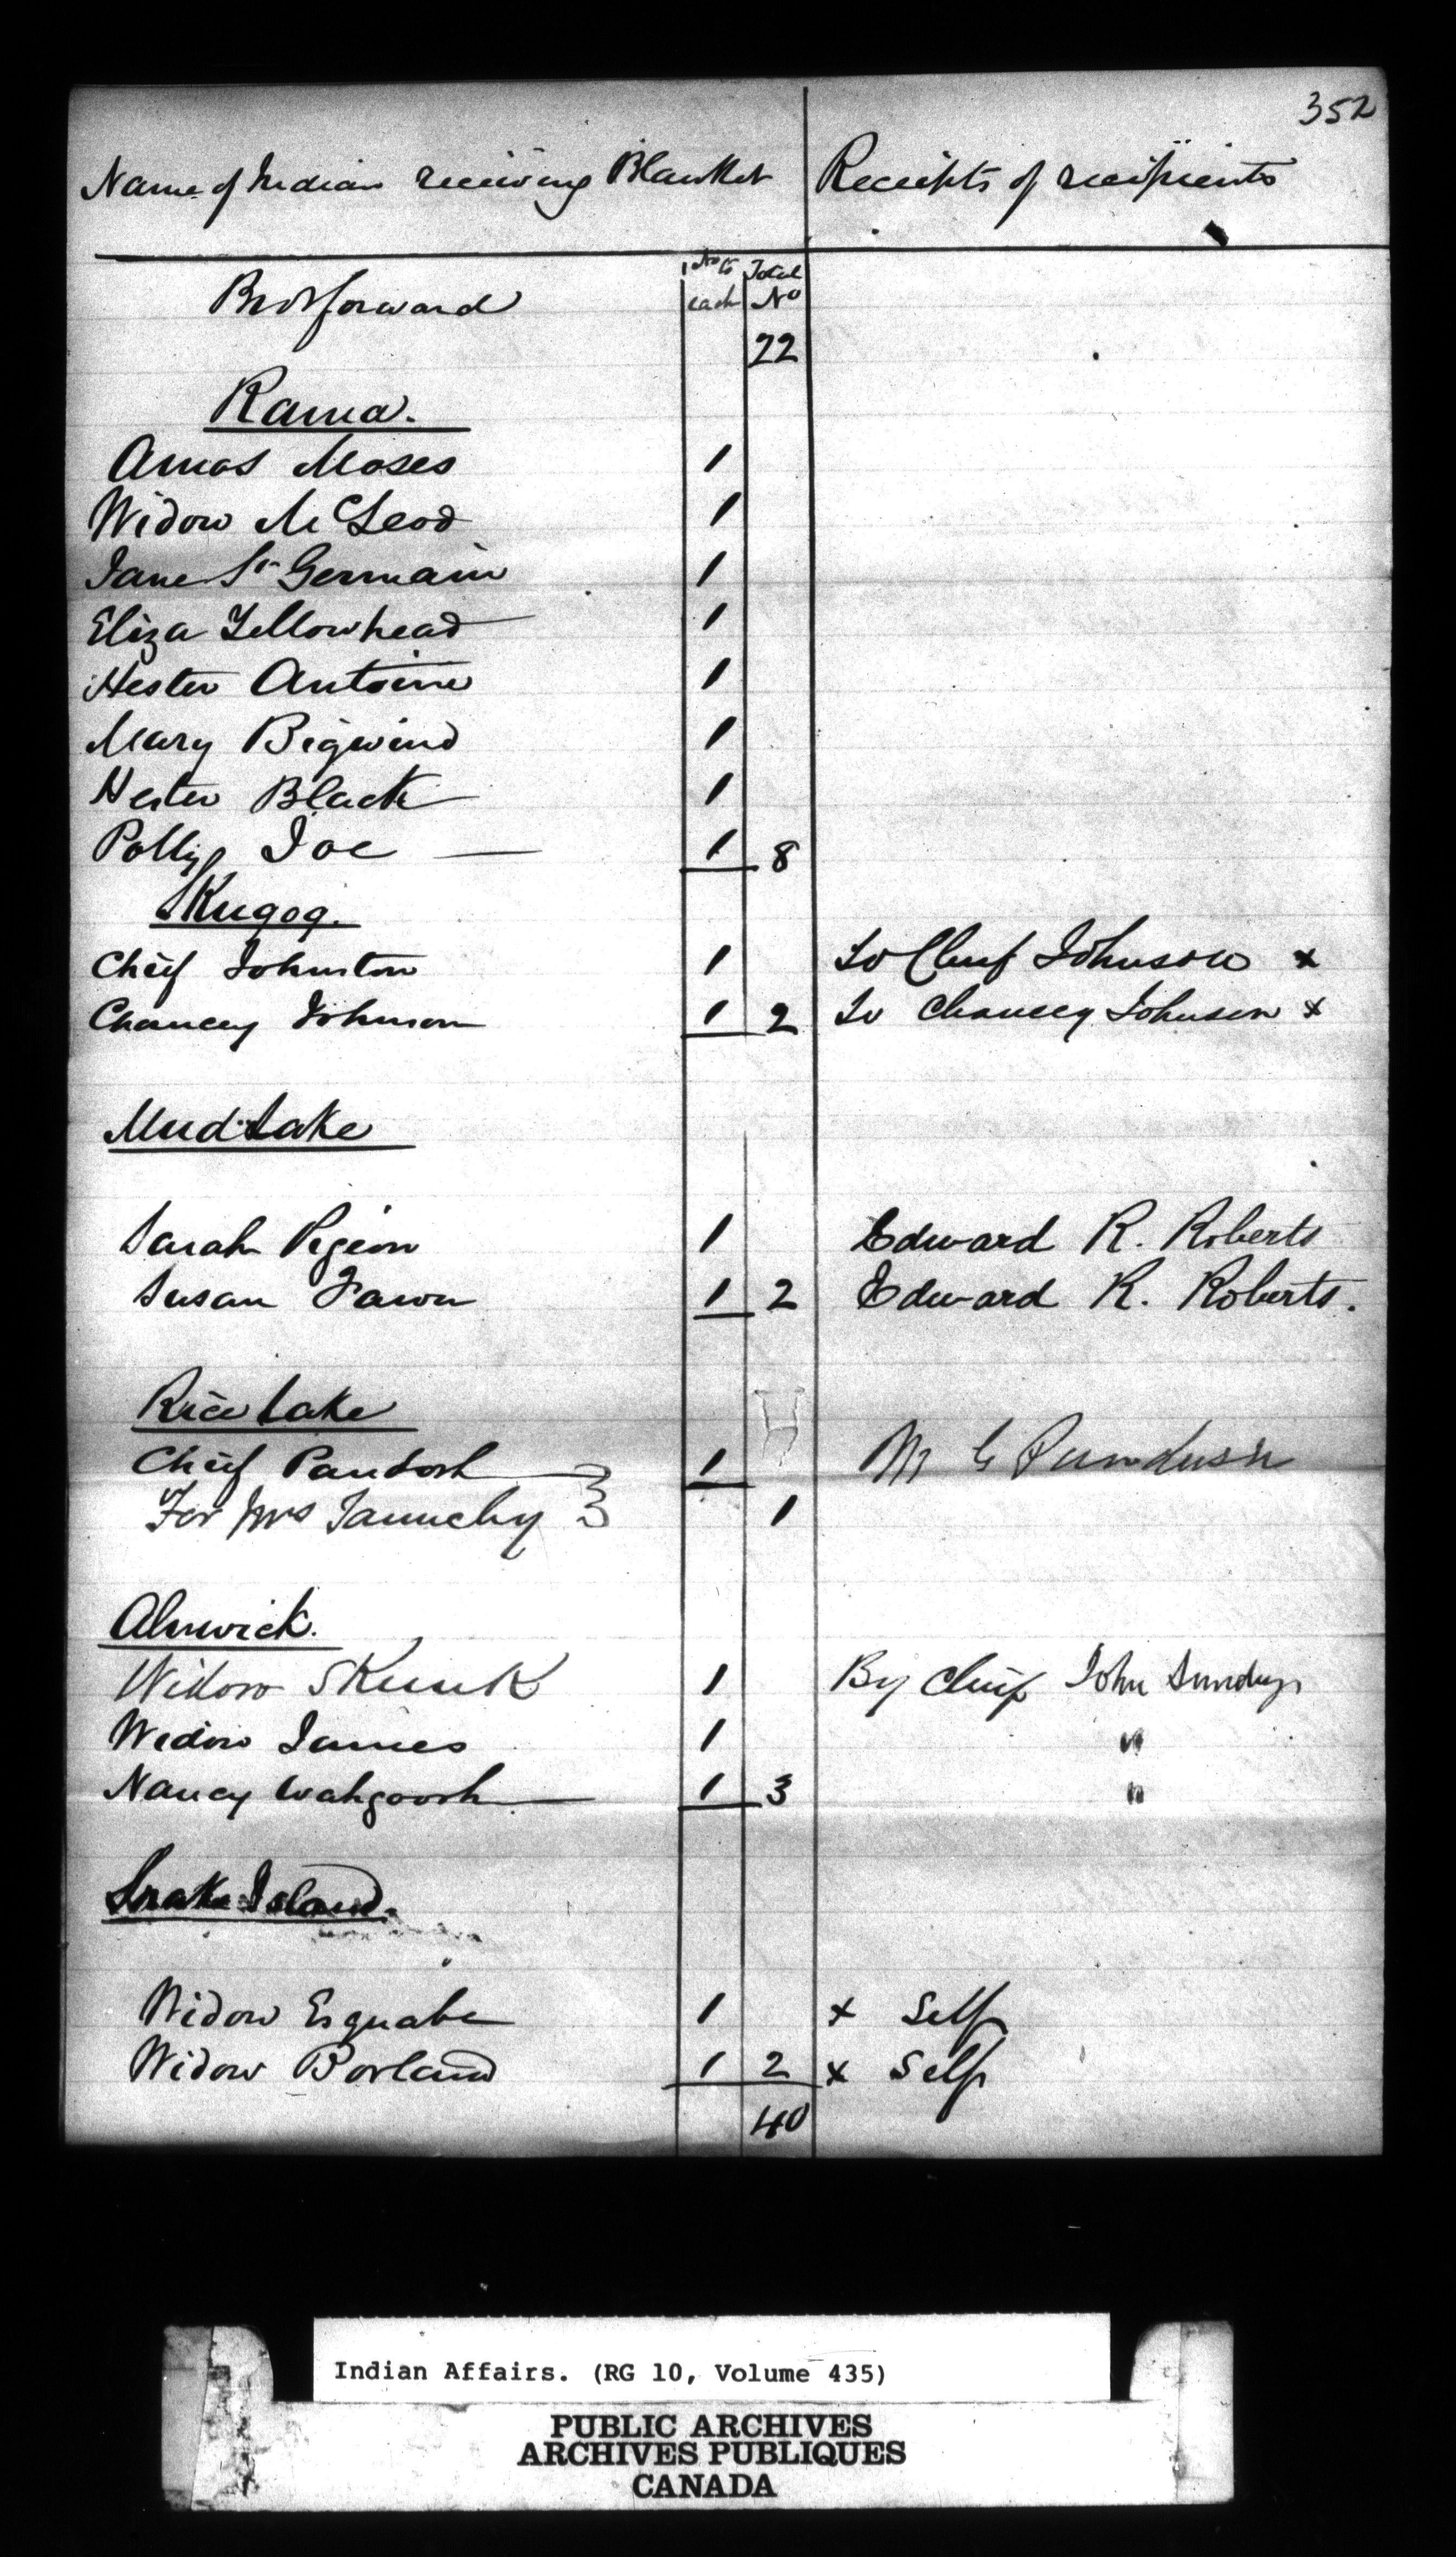 352
Name of Indian receiving Blanket Receipts of recipients
No to each Total No
Brot forward
22
Rama.
Amos Moses 1
Widow McLeod 1
Jane St Germain 1
Eliza Yellowhead 1
Hester Antoine 1
Mary Bigwind 1
Hester Black 1
Polly Joe — 1 8
Skugog.
Chief Johnston 1 To Chief Johnson x
Chancey Johnson 1 2 To Chancey Johnson x
Mud Lake
Sarah Pigeon 1 Edward R. Roberts
Susan Fawn 1 2 Edward R. Roberts.
Rice Lake
Chief Paudosh 1 M G Paudush
For Mrs Taunchy } 1
Alnwick.
Widow Skunk 1 By Chief John Sunday
Widow James 1 "
Nancy Wahgoosh 1 3 "
Snake Island.
Widow Esquabe 1 x Self
Widow Borland 1 2 x Self
40
Indian Affairs. (RG 10, Volume 435)
PUBLIC ARCHIVES
ARCHIVES PUBLIQUES
CANADA